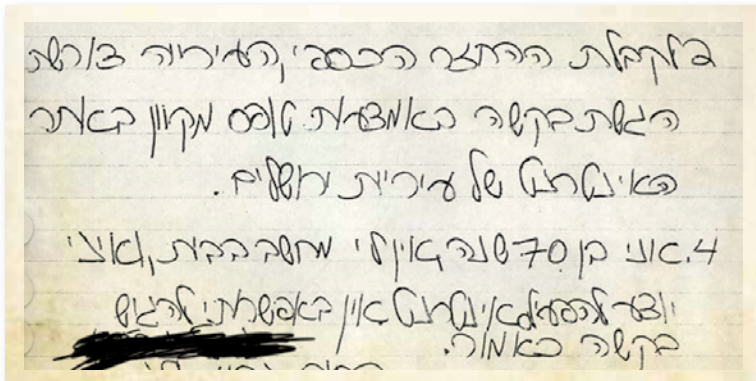 3. לקבלת ההחזר הכספי, העיריה דורשת
הגשת בקשה באמצעות טופס מקוון באתר
האינטרנט של עיריית ירושלים.
4. אני בן 70 שנה, אין לי מחשב בבית, ואיני
יודע להפעיל אינטרנט. אין באפשרותי להגיש
בקשה כאמור.